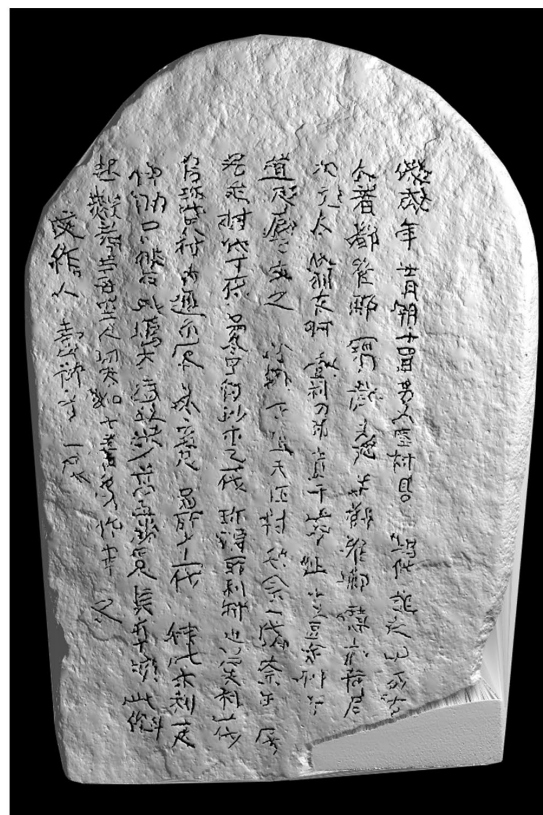 戊戌年十一月朔十四日另冬里村高塢作記之此成在
人者都唯那寶藏阿尺干都唯那慧藏阿尼
大工人仇利支村壹利刀兮貴干支上壹利干
道尺辰生之村夫作村芼令一伐奈生一伐
居毛村代丁一伐另冬里村沙木乙一伐珍得所利村也得失利一伐
塢珍此只村一尺一尺另所一伐伊叱木利一尺
助只彼日此塢大廣廿步高五步四尺長五十步此作
起數者三百十二人功夫如十三日了作事之
文作人壹利兮一尺